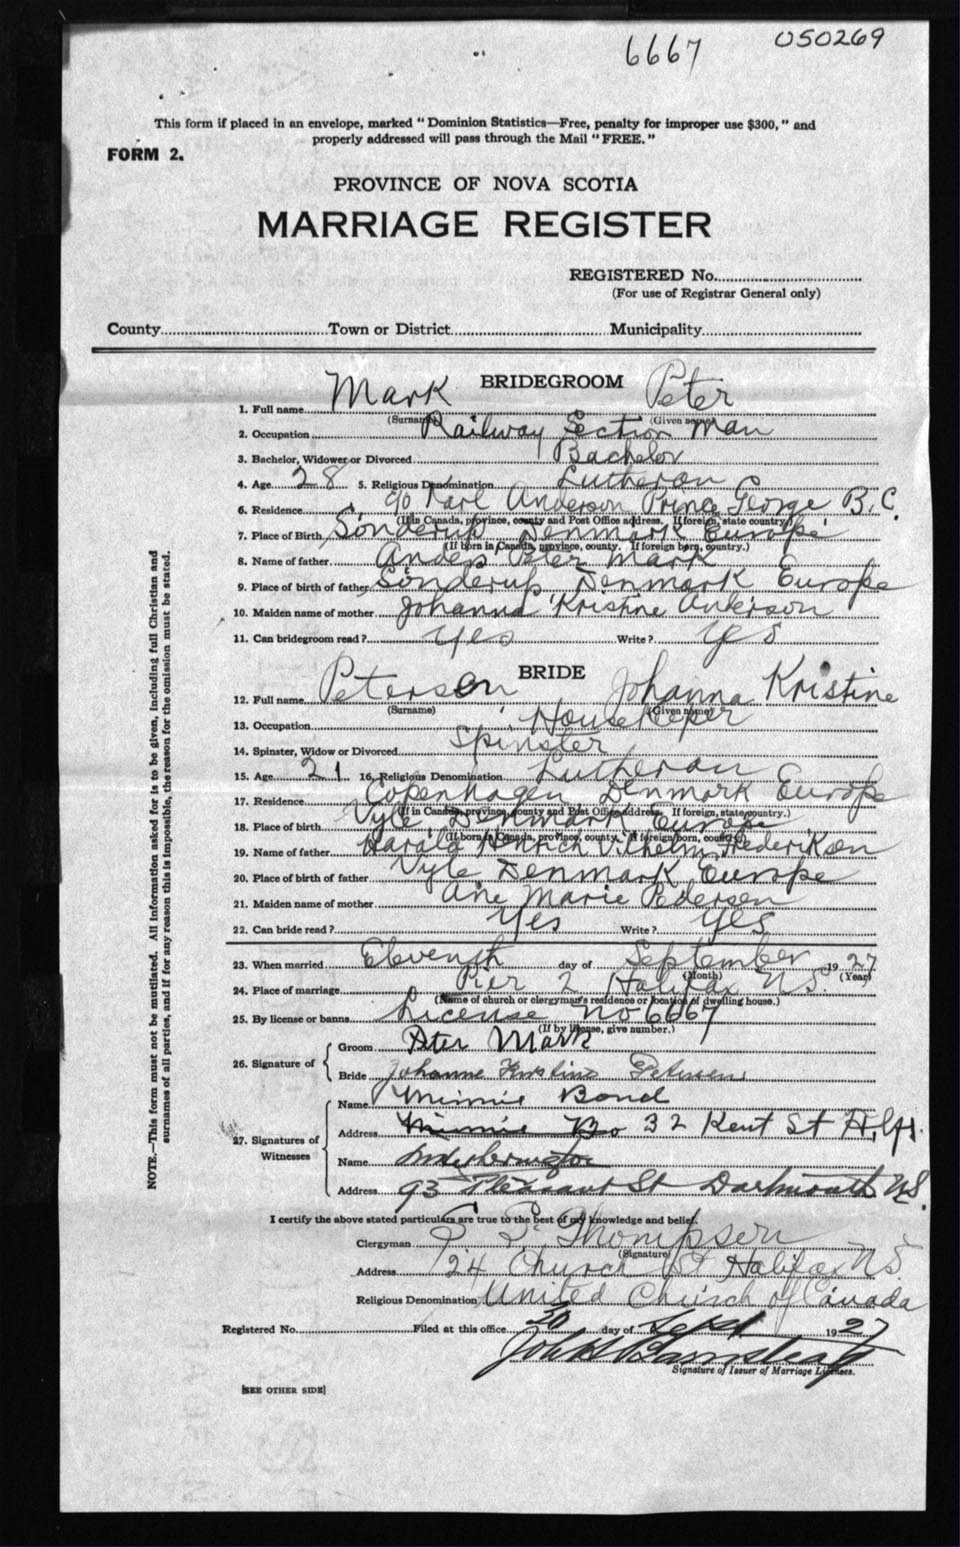 6667 050269
This form if placed in an envelope, marked "Dominion Statistics—Free, penalty for improper use $300," and
properly addressed will pass through the Mail "FREE."
FORM 2.
PROVINCE OF NOVA SCOTIA
MARRIAGE REGISTER
REGISTERED No.
(For use of Registrar General only)
County Town or District Municipality
BRIDEGROOM
1. Full name Mark Peter
(Surname) (Given name)
2. Occupation Railway Section Man
3. Bachelor, Widower or Divorced Bachelor
4. Age 28 5. Religious Denomination Lutheran
6. Residence c/o Karl Anderson Prince George B.C.
(If in Canada, province, county and Post Office address. If foreign, state country.)
7. Place of Birth Sonderup Denmark Europe
(If born in Canada, province, county. If foreign born, country.)
8. Name of father Anders Peter Mark
9. Place of birth of father Sonderup Denmark Europe
10. Maiden name of mother Johanna Kristine Anderson
11. Can bridegroom read? Yes Write? Yes
BRIDE
12. Full name Peterson Johanna Kristine
(Surname) (Given name)
13. Occupation HouseKeper
14. Spinster, Widow or Divorced Spinster
15. Age 21 16. Religious Denomination Lutheran
17. Residence Copenhagen Denmark Europe
(If in Canada, province, county and Post Office address. If foreign, state country.)
18. Place of birth Vyle Denmark Europe
(If born in Canada, province, county. If foreign born, country)
19. Name of father Harald Henrich Vilhelm Frederiksen
20. Place of birth of father Vyle Denmark Europe
21. Maiden name of mother Ane Marie Pedersen
22. Can bride read? Yes Write? Yes
23. When married Eleventh day of September 1927
(Month) (Year)
24. Place of marriage Pier 2 Halifax N.S.
(Name of church or clergyman's residence or location of dwelling house.)
25. By license or banns License No 6667
(If by license, give number.)
26. Signature of
Groom Peter Mark
Bride Johanne Kristine Petersen
27. Signatures of Witnesses
Name Minnie Bond
Address Minnie Bo 32 Kent St Hlfx.
Name
Address 93 Pleasant St Dartmouth N.S.
I certify the above stated particulars are true to the best of my knowledge and belief.
Clergyman Thompson
(Signature)
Address 24 Church St Halifax N.S.
Religious Denomination United Church of Canada
Registered No. Filed at this office 30 day of Sept 1927
Signature of Issuer of Marriage Licenses.
[SEE OTHER SIDE]
NOTE.—This form must not be mutilated. All information asked for is to be given, including full Christian and
surnames of all parties, and if for any reason this is impossible, the reason for the omission must be stated.